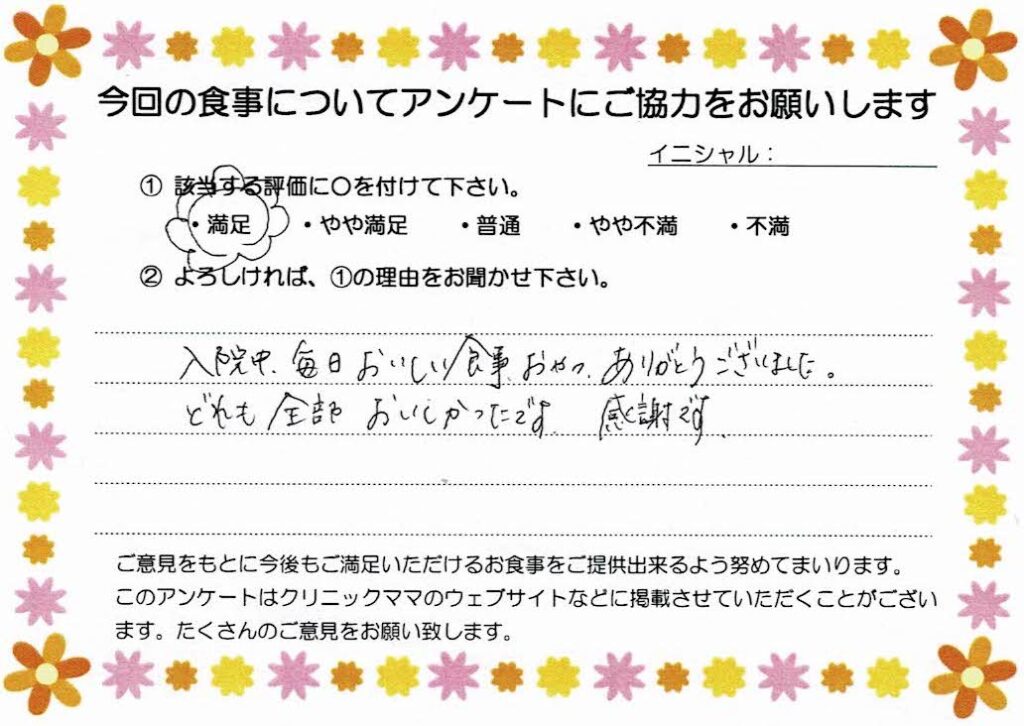 今回の食事についてアンケートにご協力をお願いします
イニシャル：
① 該当する評価に〇を付けて下さい。
・満足 ・やや満足 ・普通 ・やや不満 ・不満
② よろしければ、①の理由をお聞かせ下さい。
入院中、毎日おいしい食事、おやつ、ありがとうございました。
どれも全部おいしかったです。感謝です。
ご意見をもとに今後もご満足いただけるお食事をご提供出来るよう努めてまいります。
このアンケートはクリニックママのウェブサイトなどに掲載させていただくことがござい
ます。たくさんのご意見をお願い致します。